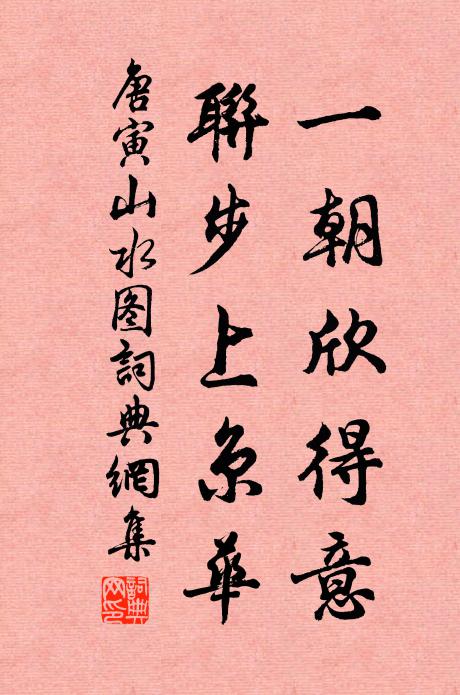 一朝欣得意
聯步上京華
唐寅山水图詞典網集
詞典网印